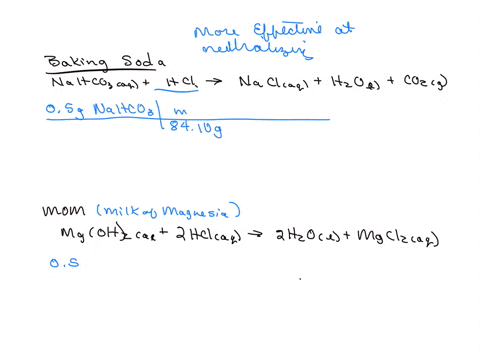 More Effective at
neutralizing
Baking Soda
NaHCO3(aq) + HCl → NaCl(aq) + H2O(l) + CO2(g)
0.5g NaHCO3 | m
84.10g
MOM (milk of Magnesia)
Mg(OH)2(aq) + 2HCl(aq) → 2H2O(l) + MgCl2(aq)
0.5